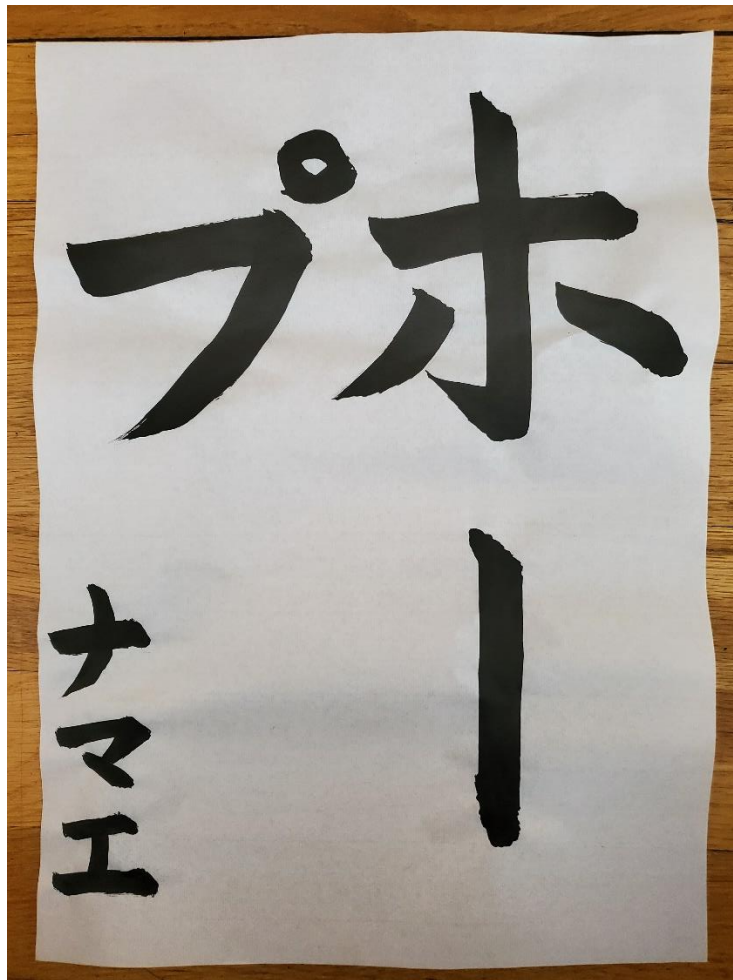 ホー
プ
ナマエ